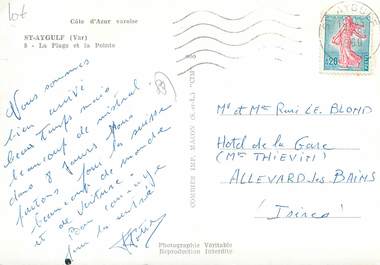 Lot
Côte d'Azur varoise
ST-AYGULF (Var)
8 - La Plage et la Pointe
Vous sommes
bien arrivé
beau temps mais
beaucoup de mistral
dans 8 jours Nous
partons pour la suisse
beaucoup de monde
et de voiture.
Bon courage
pour la rentrée
COMBIER IMP. MACON (S.-&-L.) "CIM"
ST AYGULF
0,20
Mr et Mme René LE BLOND
Hotel de la Gare
(Mme THIEVIN)
ALLEVARD-les BAINS
(Isère)
Photographie Véritable
Reproduction Interdite